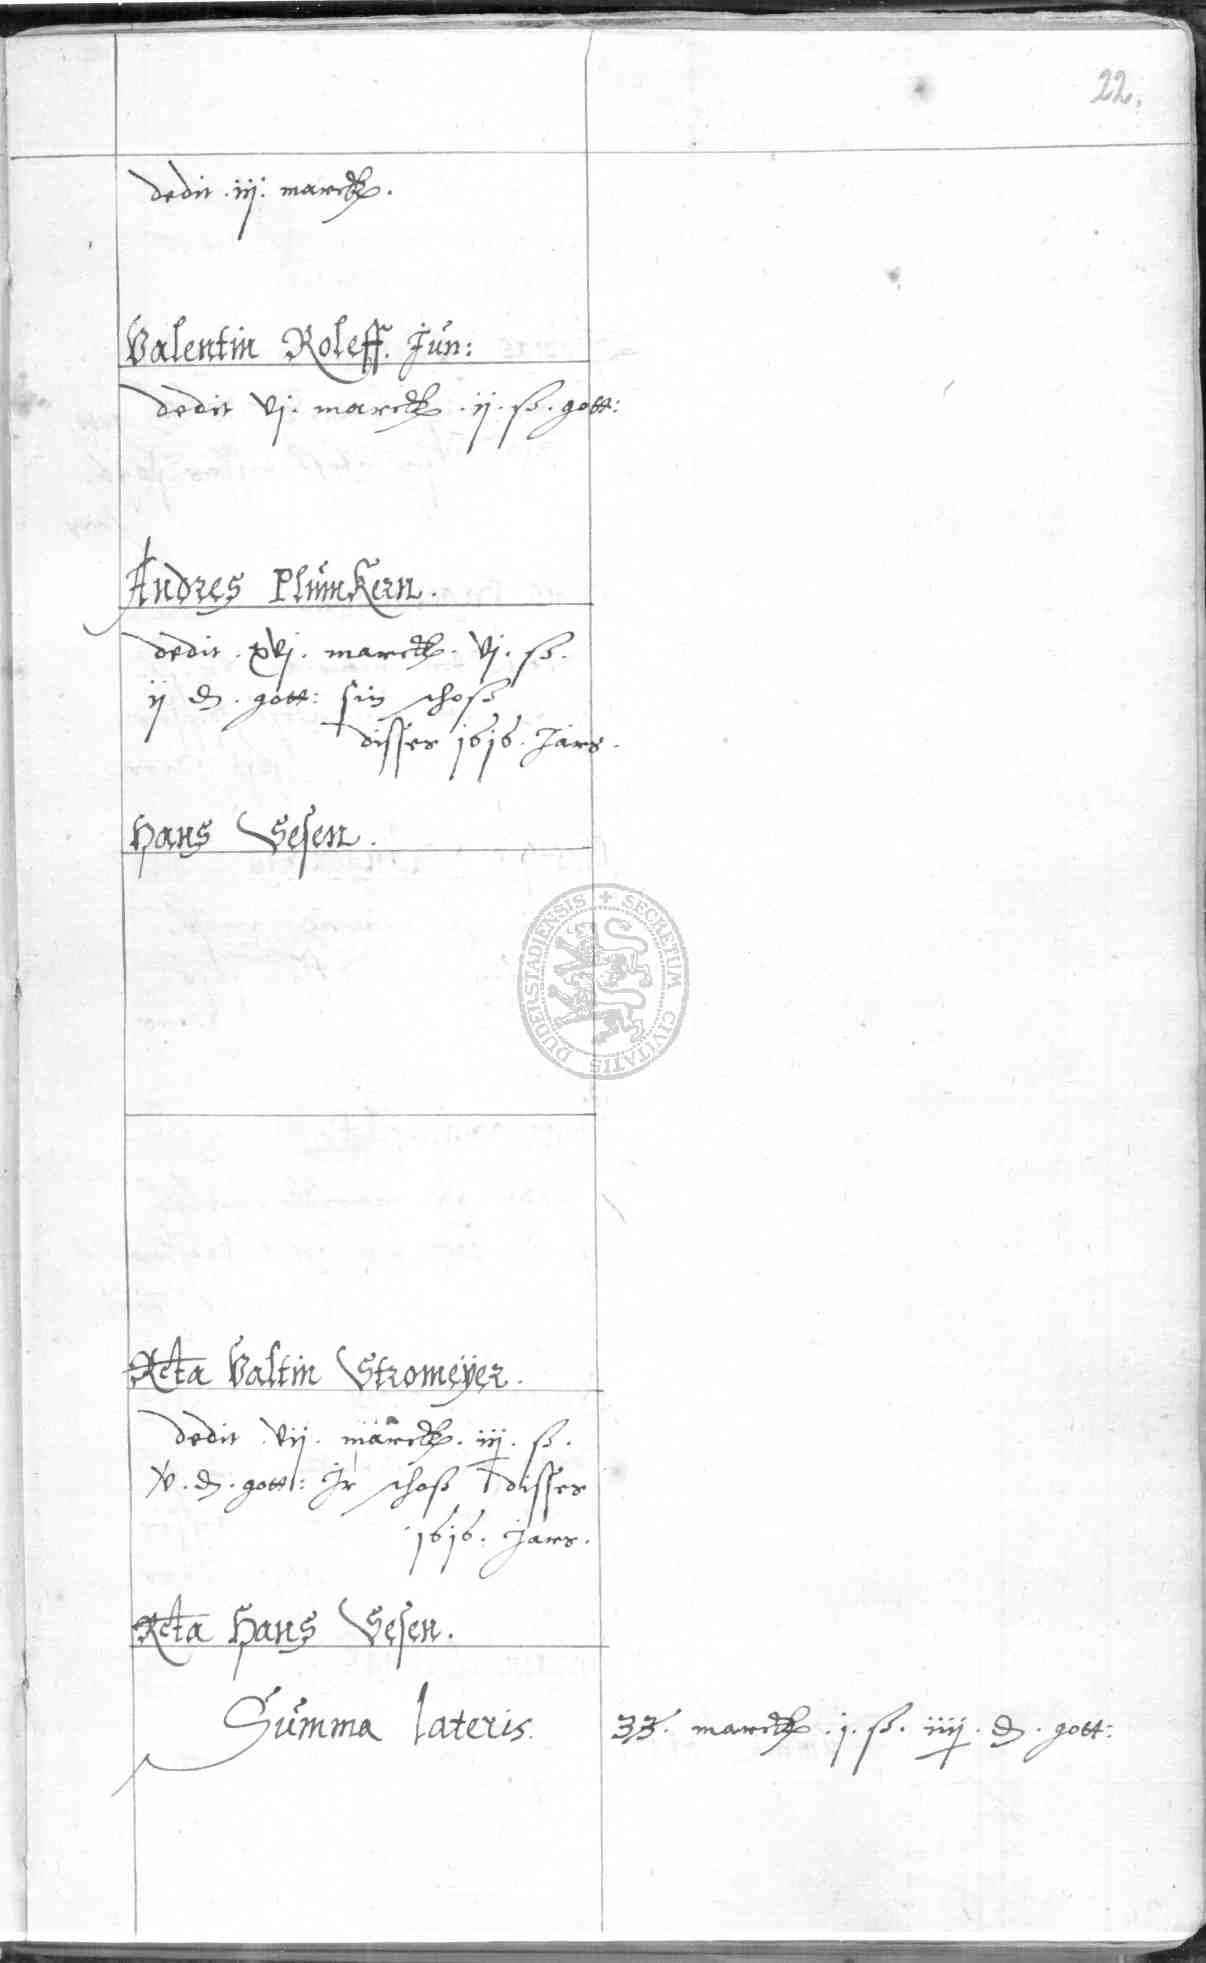 22.
dedit . iij . marck .
Valentin Roleff . Jün:
dedit vj . marck . ij . ß . gott:
Andres Plümkern .
dedit . xvj . marck . vj . ß .
ij d . gott: sin schoß
disses 1616 . Jars .
Hans Sesen .
DUDERSTADIENSIS + SECRETUM CIVITATIS
Rcta Valtin Stromeÿer .
dedit . vij . marck . iij . ß .
v . d . gott: Jr schoß disses
1616 . Jars .
Rcta Hans Sesen .
Summa lateris . 33 . marck . j . ß . iiij . d . gott: